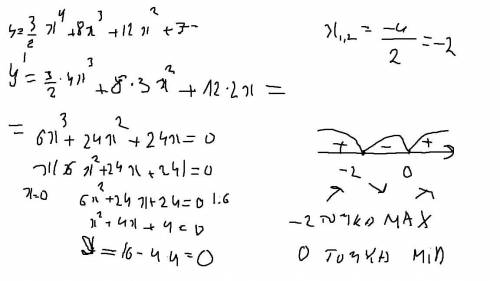 y = 3/2 x⁴ + 8x³ + 12x² + 7-
y' = 3/2 · 4x³ + 8 · 3x² + 12 · 2x =
= 6x³ + 24x² + 24x = 0
x(6x² + 24x + 24) = 0
x=0 6x² + 24x + 24 = 0 1.6
x² + 4x + 4 = 0
D = 16 - 4·4 = 0
x₁,₂ = -4/2 = -2
+ - +
-2 0
↗ ↘ ↗
-2 точка MAX
0 точка MiN